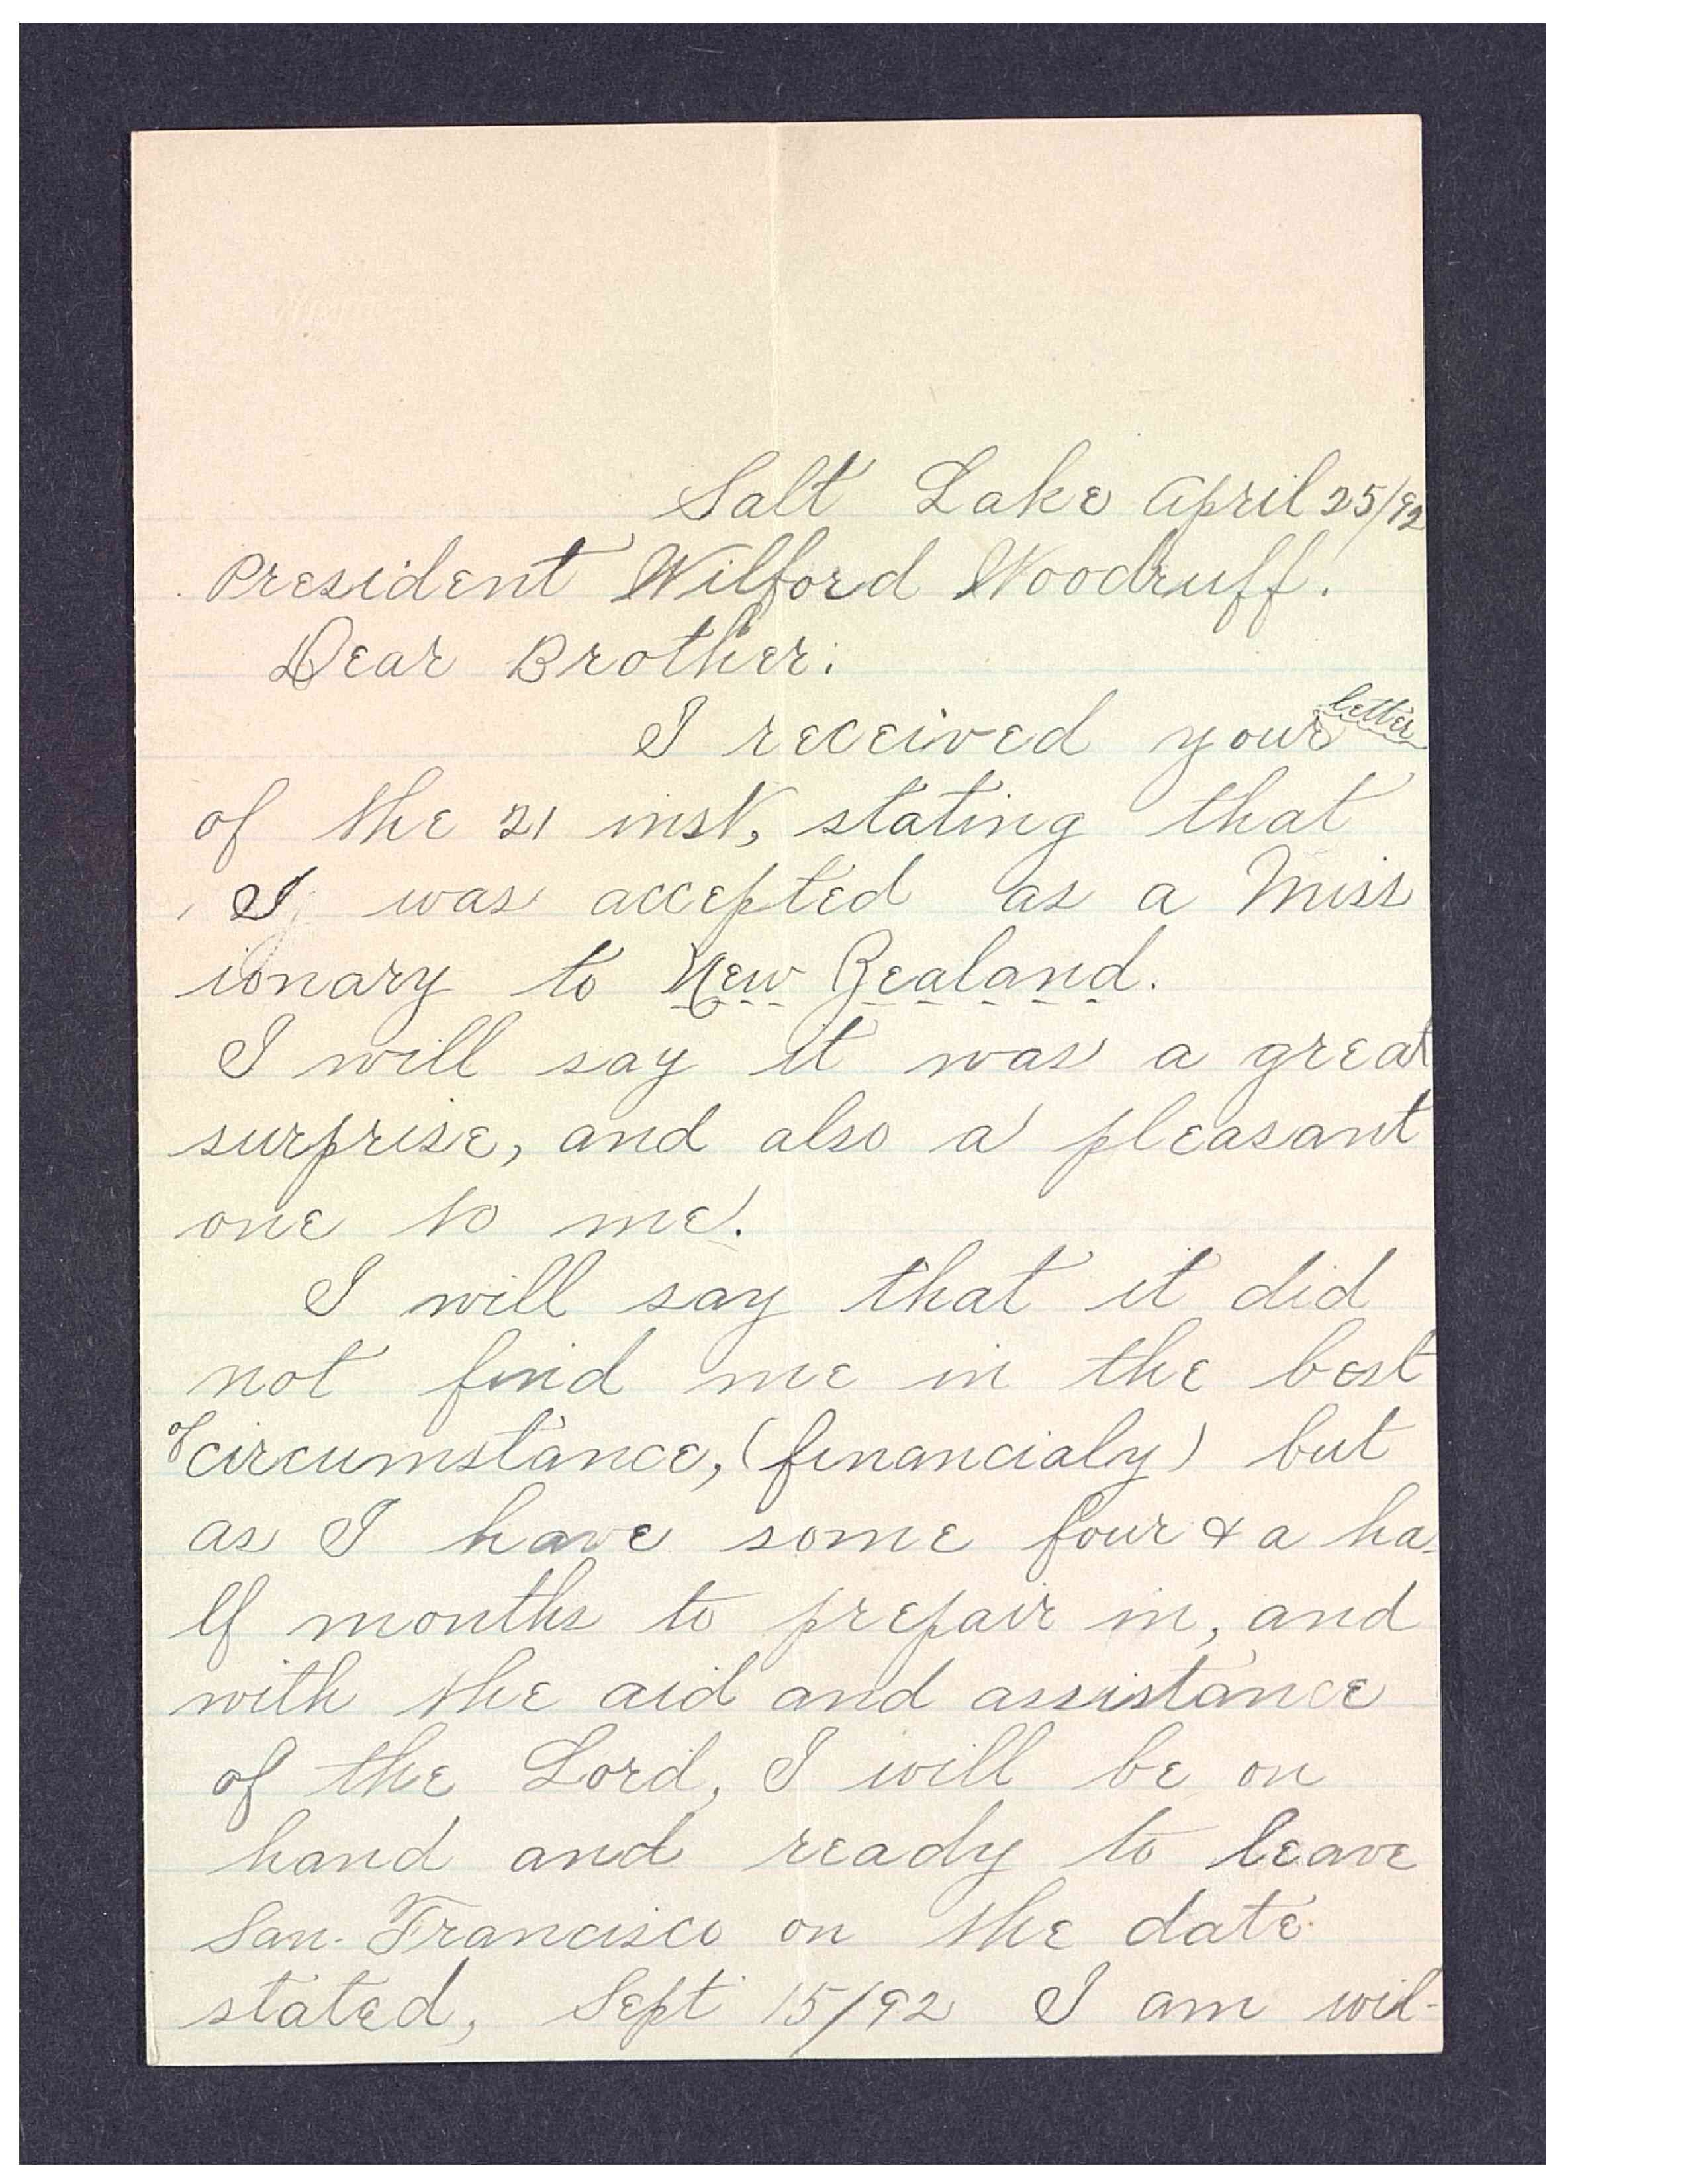 Salt Lake April 25/92
President Wilford Woodruff.
Dear Brother:
I received your letter
of the 21 inst, stating that
I was accepted as a Miss
ionary to New Zealand.
I will say it was a great
surprise, and also a pleasant
one to me.
I will say that it did
not find me in the best
of circumstance, (financialy) but
as I have some four & a ha-
lf months to prepair in, and
with the aid and assistance
of the Lord, I will be on
hand and ready to leave
San. Francisco on the date
stated, Sept 15/92 I am wil-